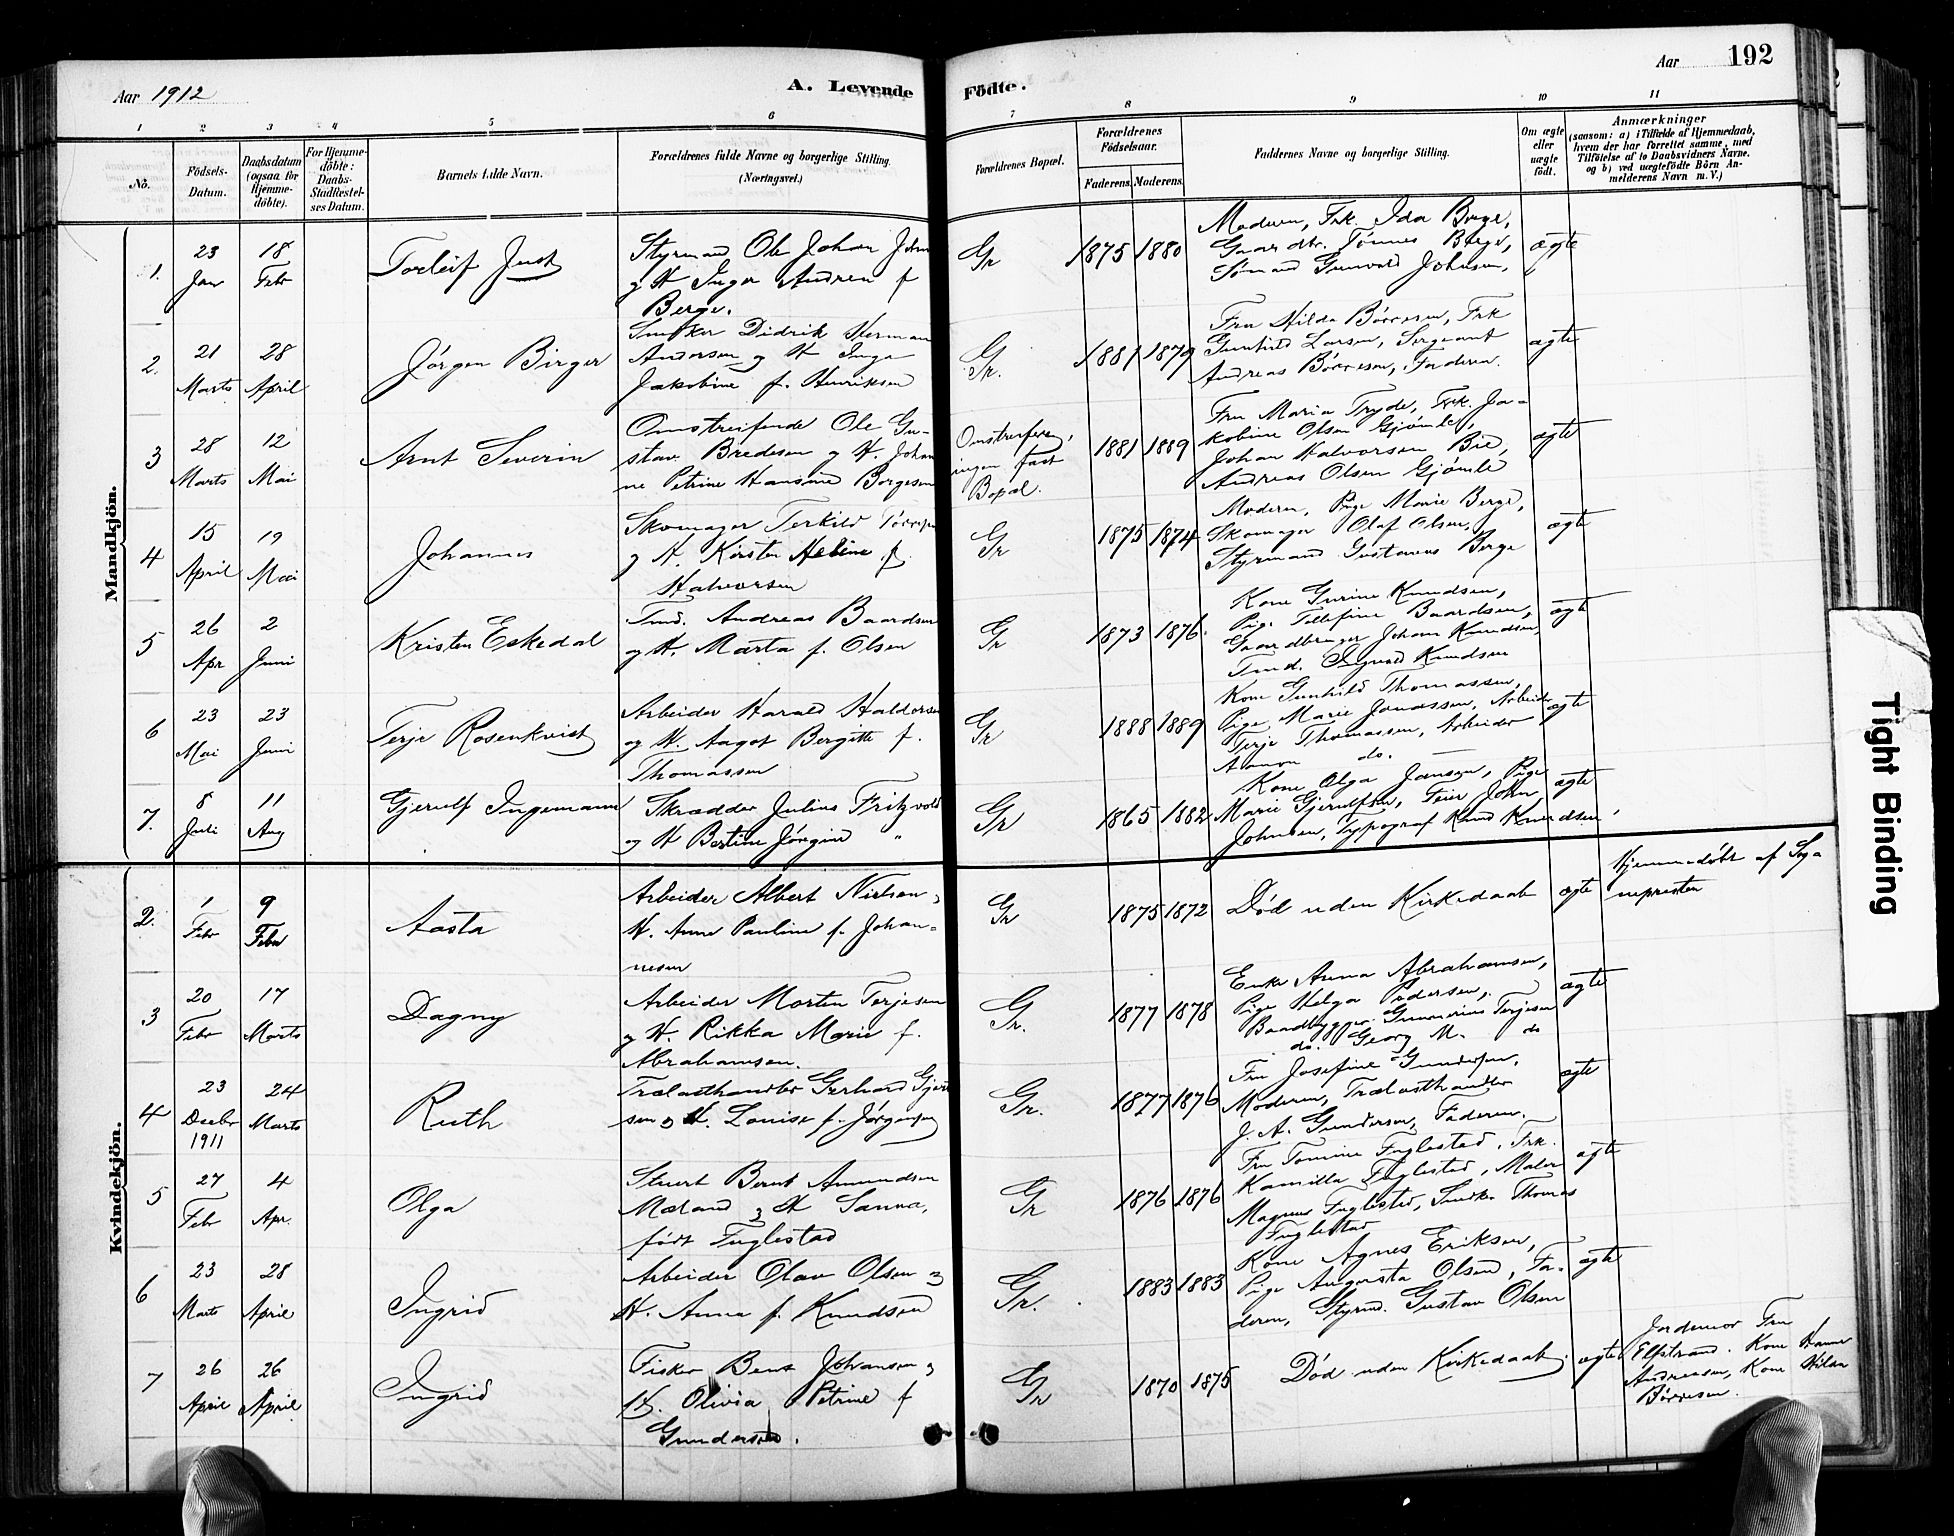 Aar 1912
A. Levende
Födte.
Aar
192
1
2
3
4
5
6
7
8
9
10
11
No.
Födsels-
Datum.
Daabsdatum
(ogsaa for
Hjemme-
döbte).
For Hjemme-
döbte:
Daabs-
Stadfestel-
ses Datum.
Barnets fulde Navn.
Forældrenes fulde Navne og borgerlige Stilling.
(Næringsvei.)
Forældrenes Bopæl.
Forældrenes
Födselsaar.
Faderens.
Moderens.
Faddernes Navne og borgerlige Stilling.
Om ægte
eller
uægte
födt.
Anmærkninger
(saasom: a) i Tilfælde af Hjemmedaab,
hvem der har forrettet samme, med
Tilföielse af to Daabsvidners Navne,
og b) ved uægtefödte Börn An-
melderens Navn m. V.)
Mandkjön.
1.
23
Jan
18
Febr
Torleif Just
Styrmand Ole Johan John
og H Inger Andrea f
Berge.
Gr
1875
1880
Moderen, Frk. Ida Berge,
Gaardbr. Tønnes Berge,
Sømand Gunvald Johnsen,
ægte
2.
21
Marts
28
April
Jörgen Birger
Snekker Didrik Herman
Andersen og H Inga
Jakobine f. Henriksen
Gr.
1881
1879
Fru Hilda Börresen, Frk
Gunhild Larsen, Sergeant
Andreas Börresen, Faderen.
ægte
3
28
Marts
12
Mai
Arnt Severin
Omstreifende Ole Gu-
stav Bredesen og H. Johan
ne Petrine Hansine Borgesen
Omstreifere,
ingen fast
Bopæl.
1881
1889
Fru Maria Tryde, Frk. Ja-
kobine Olsen Gjömle,
Johan Halvorsen Bie,
Andreas Olsen Gjömle
ægte
4
15
April
19
Mai
Johannes
Skomager Terkild
og H. Kirsten Heline f.
Halvorsen
Gr
1875
1874
Moderen, Pige Marie Berge,
Skomager Olaf Olsen,
Styrmand Gustavus Berge
ægte
5
26
Apr
2
Juni
Kristen Eskedal
Tmd. Andreas Baardsen
og H. Marta f. Olsen
Gr
1873
1876.
Kone Gurine Knudsen,
Pige Tellefine Baardsen,
Gaardbruger Johan Knudsen,
Tmd. Ingvald Knudsen
ægte
6
23
Mai
23
Juni
Terje Rosenkvist
Arbeider Harald Haldorsen
og H. Aagot Bergitte f.
Thomassen
Gr
1888
1889
Kone Gunhild Thomassen,
Pige Marie Jonassen, Arbeider
Terje Thomassen, Arbeider
Aamon do.
ægte
7.
8
Juli
11
Aug
Gjerulf Ingemann
Skrædder Julius Fritzvold
og H Bertine Jörgine "
Gr
1865
1882
Kone Olga Jansen, Pige
Marie Gjerulfsen, Feier John
Johnsen, Typograf Knud Knudsen,
ægte
Kvindekjön.
2.
1
Febr
9
Febr
Aasta
Arbeider Albert Nielsen,
H. Anne Pauline f. Johan-
nesen
Gr
1875
1872
Död uden Kirkedaab
ægte
Hjemmedöbt af Sog
nepresten
3
20
Febr
17
Marts
Dagny
Arbeider Morten Terjesen
og H. Rikka Marie f.
Abrahamsen.
Gr.
1877
1878
Enke Anna Abrahamsen,
Pige Helga Pedersen,
Baadbygger Gunnerius Terjesen
do. Georg M. do
ægte
4
23
Decbr
1911
24
Marts
Ruth
Trælasthandler Gerhard Gjert
sen og H. Louise f. Jörgensen
Gr.
1877
1876
Fru Josefine Gundersen,
Moderen, Trælasthandler
J. A. Gundersen, Faderen.
ægte
5
27
Febr
4
Apr.
Olga
Stuert Bernt Amundsen
Mæland og H Sanna,
födt Fuglestad
Gr
1876
1876
Fru Tomine Fuglestad, Frk.
Kamilla Fuglestad, Maler
Magnus Fuglestad, Snedker Thomas
Fuglestad
ægte
6
23
Marts
28
April
Ingrid
Arbeider Olav Olsen og
H. Anna f. Knudsen
Gr.
1883
1883
Kone Agnes Eriksen,
Pige Augusta Olsen, Fa-
deren, Styrmd. Gustav Olsen
ægte
7
26
April
26
April
Ingrid
Fisker Bent Johansen og
H. Olivia Petrine f
Gundersen.
Gr
1870
1875
Död uden Kirkedaab.
ægte
Jordemor Fru
Elfstrand. Kone Hanne
Andreasen, Kone Hilda
Börresen.
Tight Binding